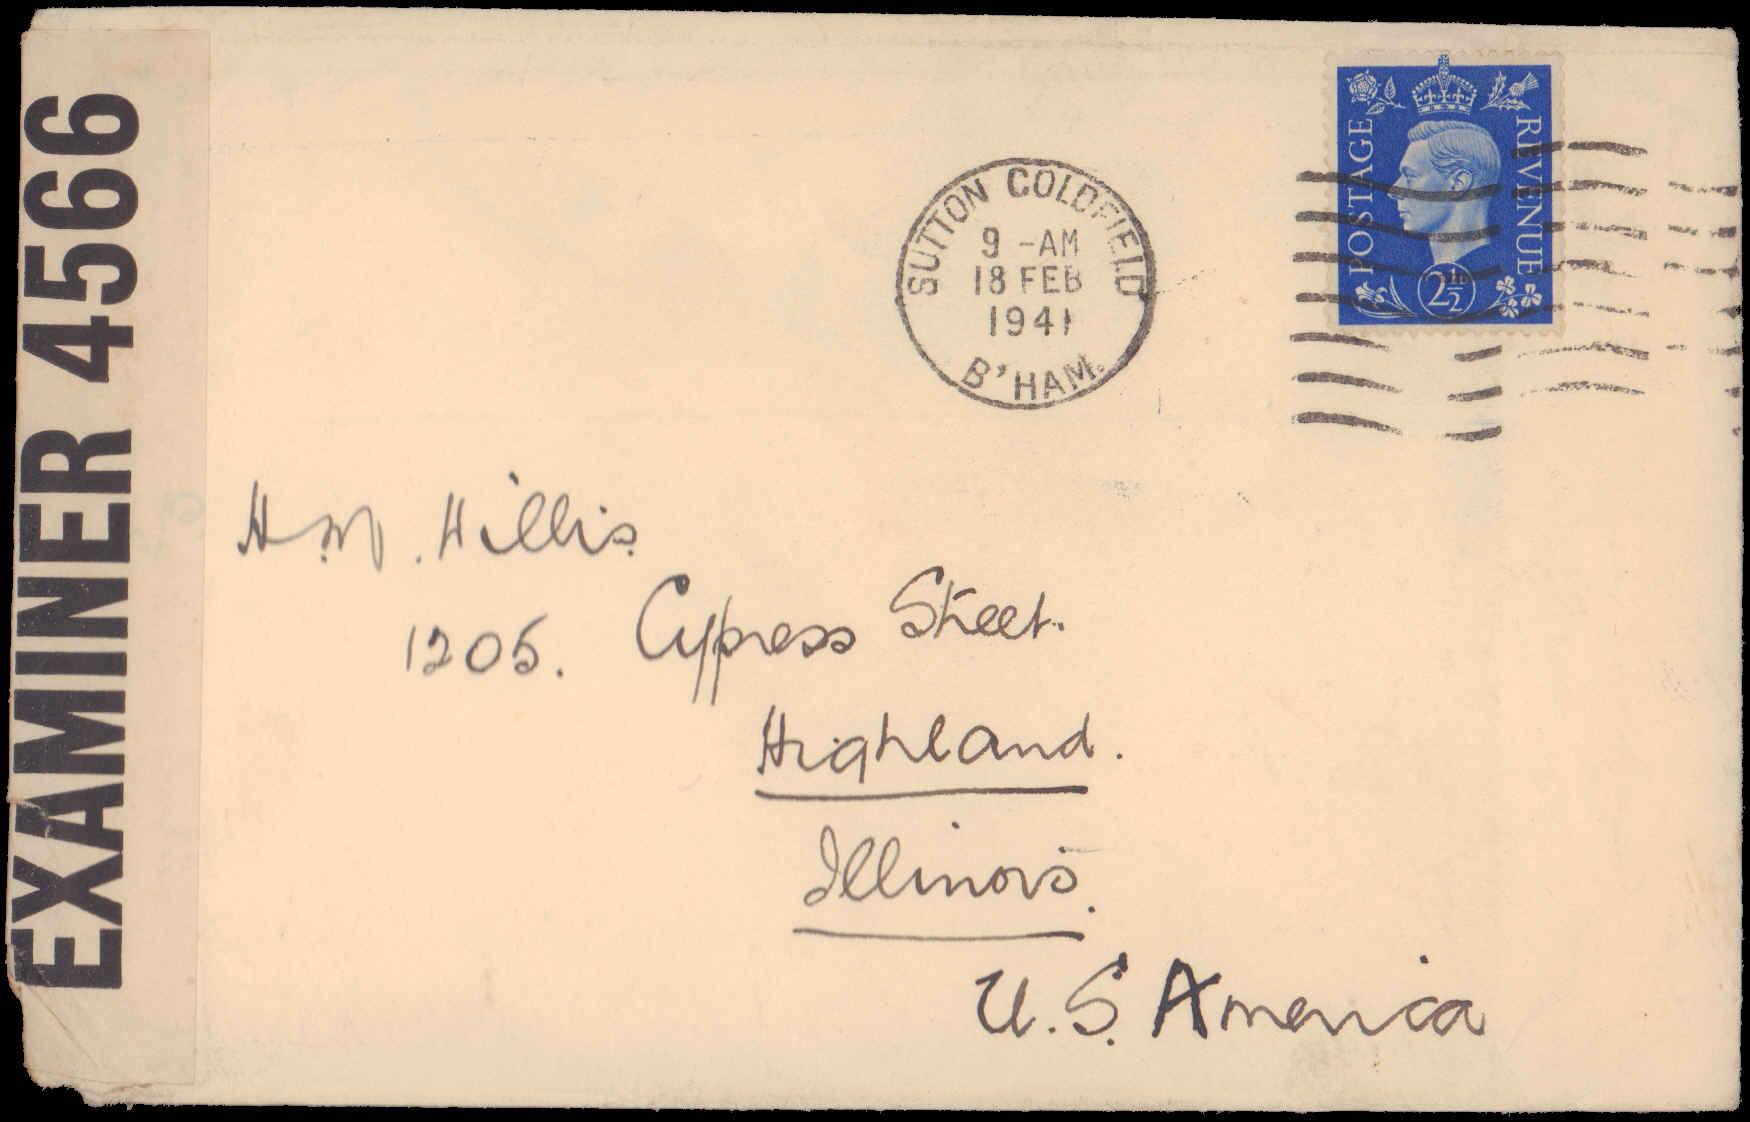 EXAMINER 4566
POSTAGE REVENUE
2½D
SUTTON COLDFIELD
9 -AM
18 FEB
1941
B'HAM.
H.M. Hillis
1205. Cypress Street.
Highland.
Illinois.
U.S. America